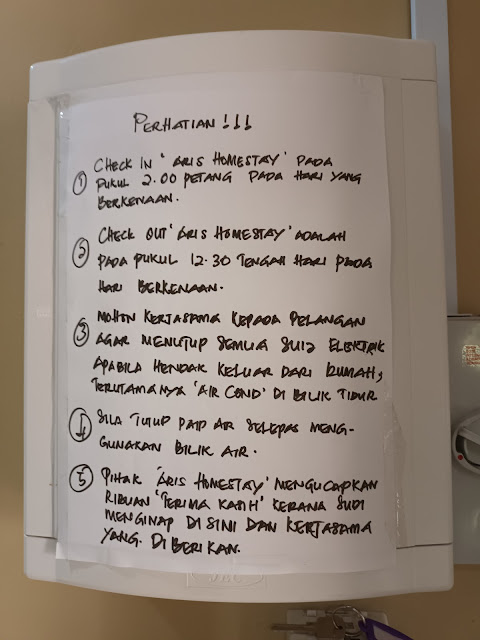 PERHATIAN !!!
① CHECK IN 'ARIS HOMESTAY' PADA
PUKUL 2.00 PETANG PADA HARI YANG
BERKENAAN.
② CHECK OUT 'ARIS HOMESTAY' ADALAH
PADA PUKUL 12.30 TENGAH HARI PADA
HARI BERKENAAN.
③ MOHON KERJASAMA KEPADA PELANGAN
AGAR MENUTUP SEMUA SUIZ ELEKTRIK
APABILA HENDAK KELUAR DARI RUMAH,
TERUTAMANYA 'AIR COND' DI BILIK TIDUR
④ SILA TUTUP PAIP AIR SELEPAS MENG-
GUNAKAN BILIK AIR.
⑤ PIHAK 'ARIS HOMESTAY' MENGUCAPKAN
RIBUAN 'TERIMA KASIH' KERANA SUDI
MENGINAP DI SINI DAN KERJASAMA
YANG. DI BERIKAN.